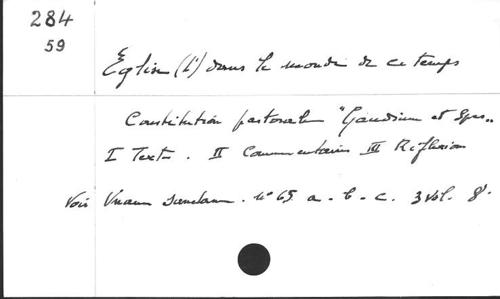 284
59
Église (L') dans le monde de ce temps
Constitution pastorale "Gaudium et Spes"
I Texte. II Commentaires III Réflexions
Voir Unam Sanctam. N° 65 a - b - c. 3 vol. 8°.